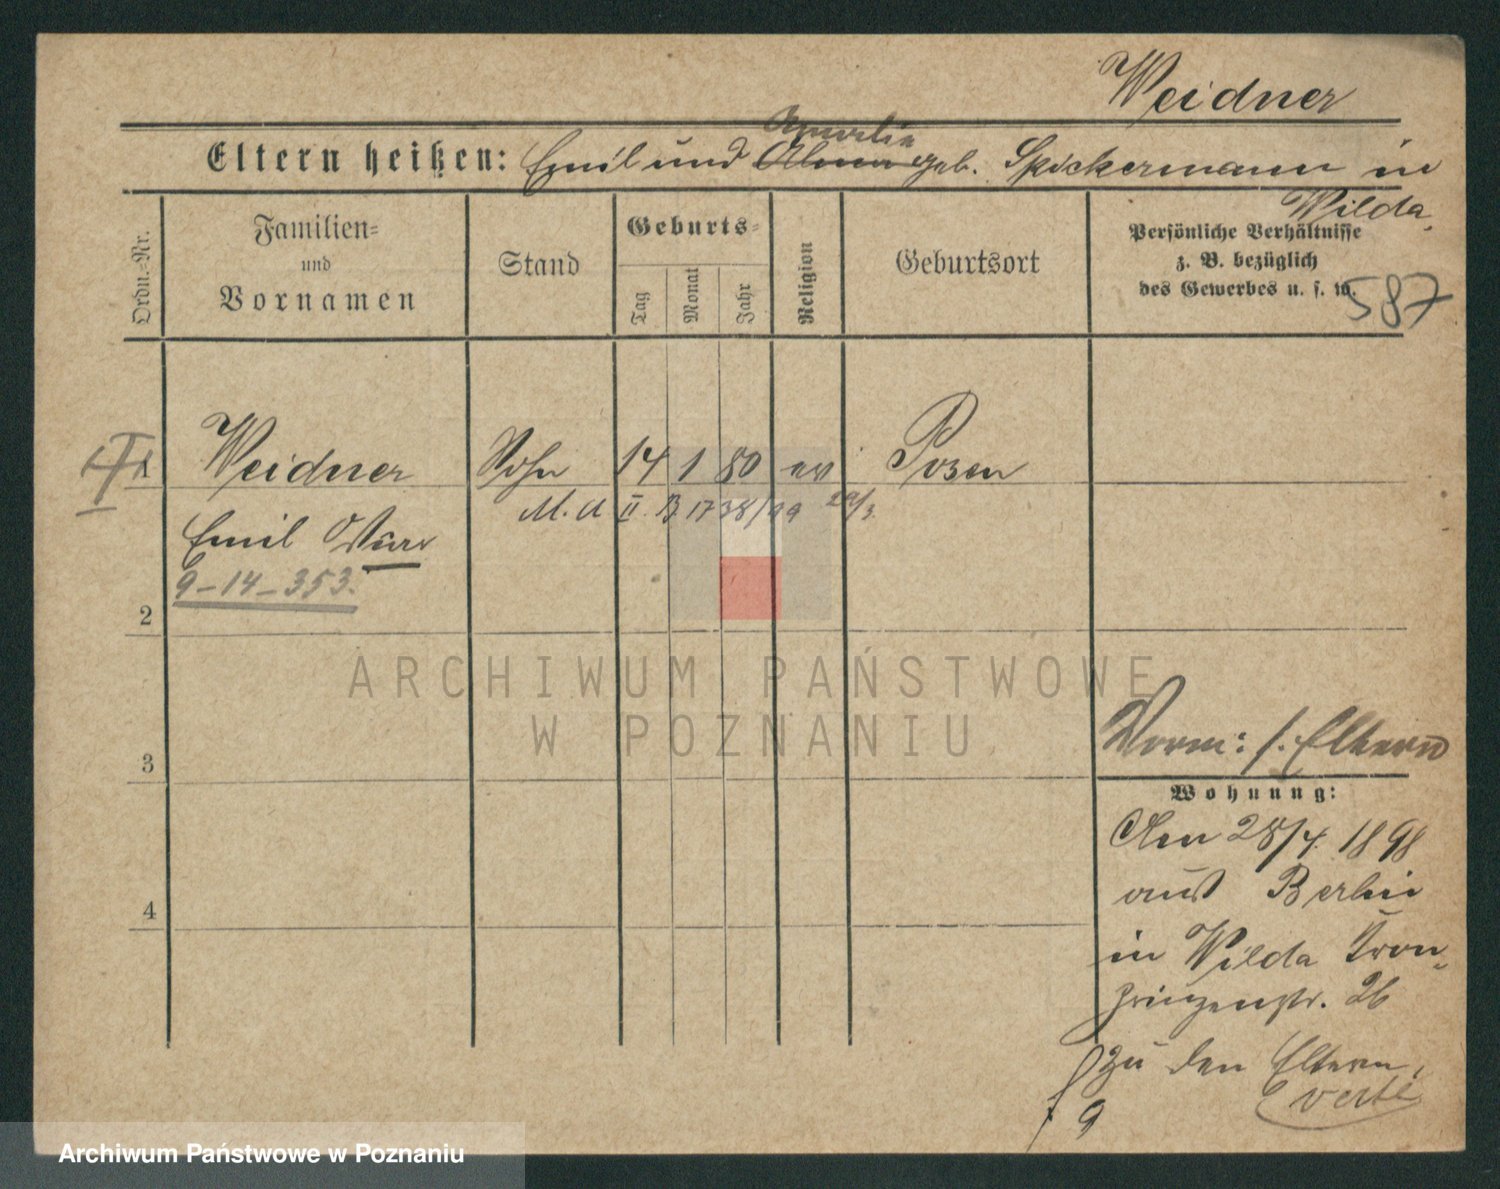 Weidner
Eltern heißen: Emil und Alma geb. Spickermann in
Wilda
Ordn.-Nr.
Familien-
und
Vornamen
Stand
Geburts-
Tag
Monat
Jahr
Religion
Geburtsort
Persönliche Verhältnisse
z. B. bezüglich
des Gewerbes u. s. w.
587
1 Weidner Sohn 14 1 80 ev Posen
M. A II. B 17 38/99 29/3.
Emil
9-14-353.
2
3
4
Vorm: s. Eltern
Wohnung:
Am 28/4. 1898
aus Berlin
in Wilda Kron-
prinzenstr. 26
zu den Eltern,
verte
9
ARCHIWUM PAŃSTWOWE
W POZNANIU
Archiwum Państwowe w Poznaniu